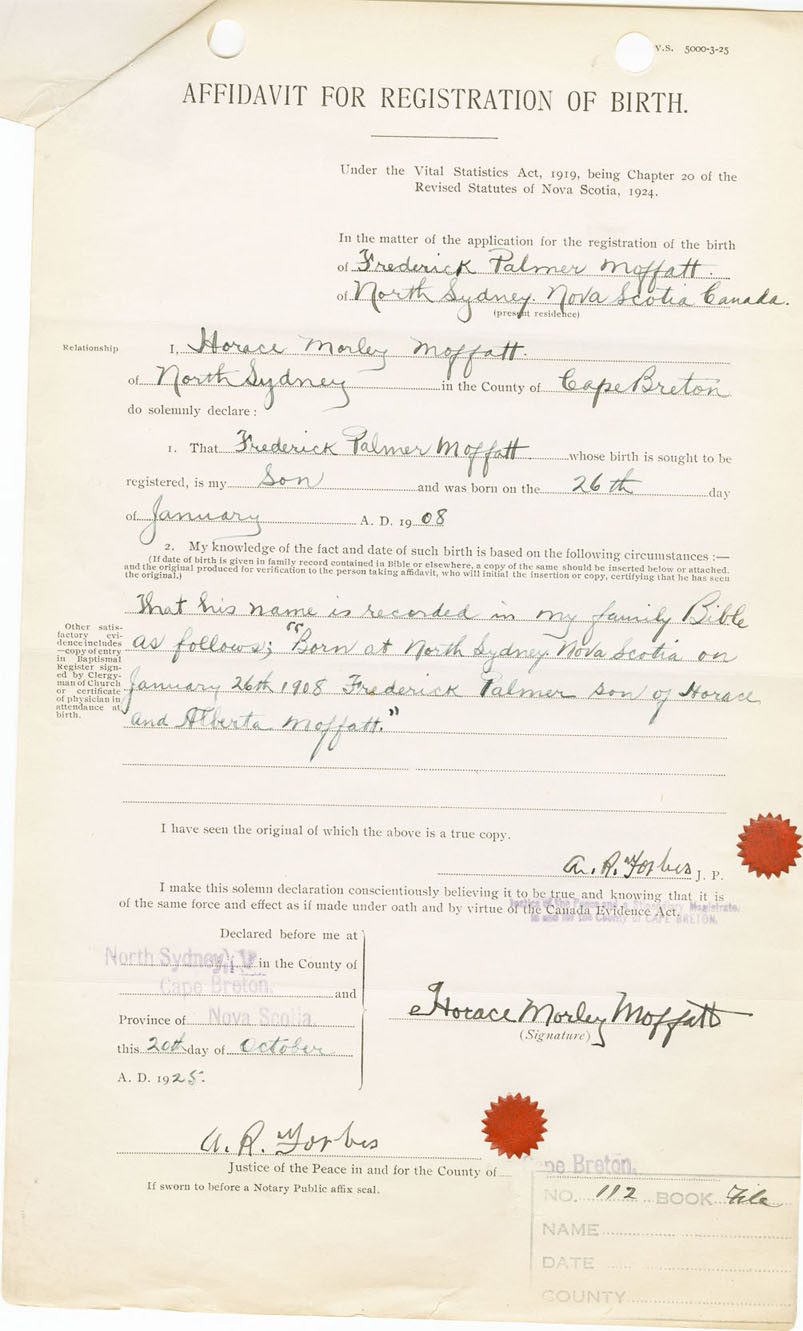 V.S. 5000-3-25
AFFIDAVIT FOR REGISTRATION OF BIRTH.
Under the Vital Statistics Act, 1919, being Chapter 20 of the
Revised Statutes of Nova Scotia, 1924.
In the matter of the application for the registration of the birth
of Frederick Palmer Moffatt.
of North Sydney. Nova Scotia Canada.
(present residence)
Relationship
I, Horace Morley Moffatt.
of North Sydney in the County of Cape Breton
do solemnly declare:
1. That Frederick Palmer Moffatt whose birth is sought to be
registered, is my Son and was born on the 26th day
of January A. D. 1908
2. My knowledge of the fact and date of such birth is based on the following circumstances :—
(If date of birth is given in family record contained in Bible or elsewhere, a copy of the same should be inserted below or attached.
and the original produced for verification to the person taking affidavit, who will initial the insertion or copy, certifying that he has seen
the original.)
Other satis-
factory evi-
dence includes
—copy of entry
in Baptismal
Register sign-
ed by Clergy-
man of Church
or certificate
of physician in
attendance at
birth.
That his name is recorded in my family Bible
as follows; "Born at North Sydney Nova Scotia on
January 26th 1908 Frederick Palmer son of Horace
and Alberta Moffatt."
I have seen the original of which the above is a true copy.
A. R. Forbes J. P.
I make this solemn declaration conscientiously believing it to be true and knowing that it is
of the same force and effect as if made under oath and by virtue of the Canada Evidence Act.
Justice of the Peace and a Stipendiary Magistrate
in and for the County of CAPE BRETON.
Declared before me at
North Sydney in the County of
Cape Breton. and
Province of Nova Scotia.
this 20th day of October
A. D. 1925.
Horace Morley Moffatt
(Signature)
A. R. Forbes
Justice of the Peace in and for the County of pe Breton.
If sworn to before a Notary Public affix seal.
NO. 112 BOOK File
NAME
DATE
COUNTY